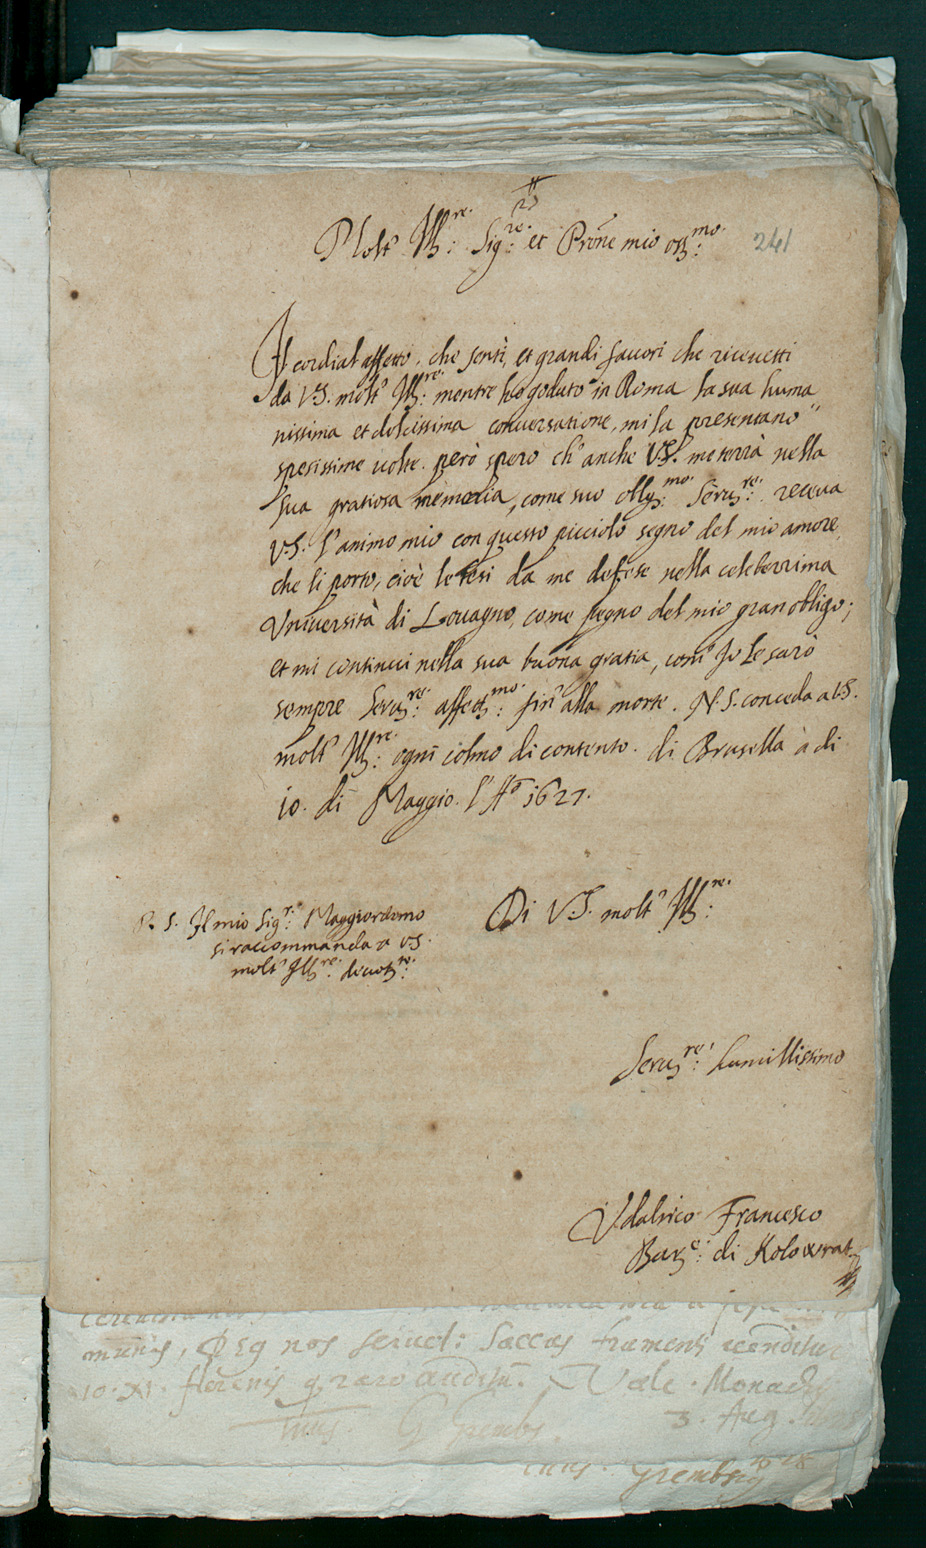 Molt' Ill:re Sig:re et Pron̄e mio oss:mo
241
Il cordial affetto, che sentì, et grandi favori che ricevetti
da V.S. molt' Ill:re mentre ho goduto in Roma la sua huma
nissima et dolcissima conversatione, mi la presentano
spesissime volte. però spero ch' anche V.S. me terrà nella
sua gratiosa memoria, come suo obllg:mo Serv:re. receva
V.S. l'animo mio con questo picciolo segno del mio amore,
che li porto, cioè le tesi da me defese nella celeberrima
Università di Lovagno, come pegno del mio gran obligo;
et mi continui nella sua buona gratia, com' Io Le sarò
sempre Serv:re affet:mo fin' alla morte. N.S. conceda a V.S.
molt' Ill:re ogni colmo di contento. di Brusella à di
10. di Maggio. l'Ao 1627.
Di V.S. molt' Ill:re
P. S. Il mio Sigr: Maggiordomo
si raccommanda a V.S.
molt' Ill:re devot:re
Serv:re humillissimo
Udalrico Francesco
Bar:e di Kolowrat
munis, nos servet: saccus frumenti venditur
10. XI. florenis raro auditu. Vale. Monachij
3. Aug